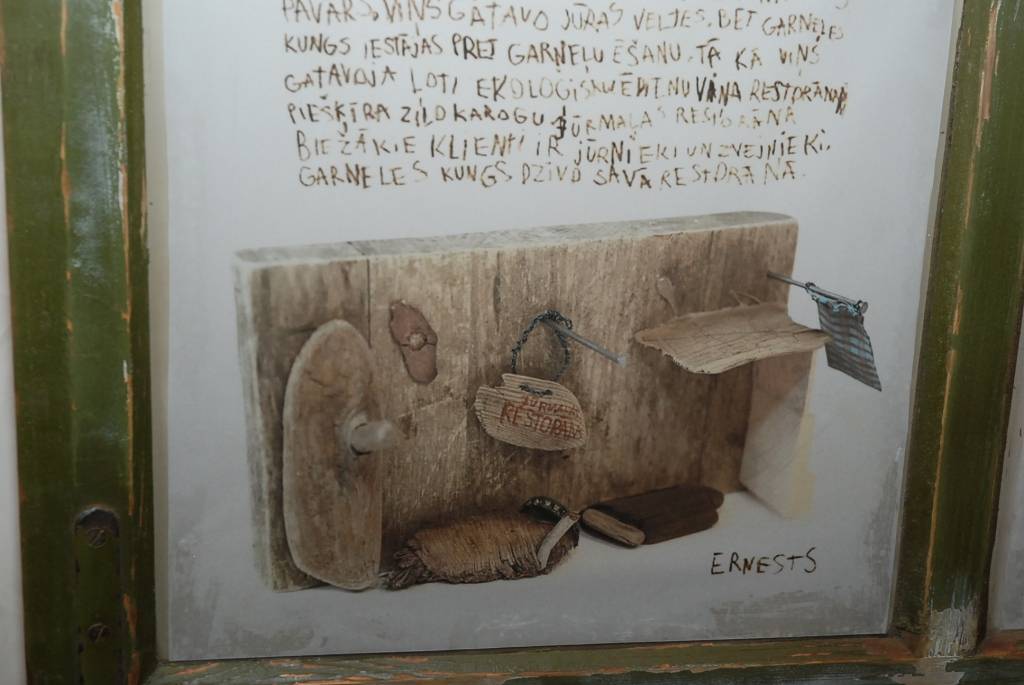 PAVĀRS, VIŅŠ GATAVO JŪRAS VELTES, BET GARNELES
KUNGS IESTĀJAS PRET GARNEĻU ĒŠANU. TĀ KĀ VIŅŠ
GATAVOJA ĻOTI EKOLOĢISKU ĒDIENU VIŅA RESTORĀNAM
PIEŠĶĪRA ZILO KAROGU. JŪRMALAS RESTORĀNA
BIEŽĀKIE KLIENTI IR JŪRNIEKI UN ZVEJNIEKI.
GARNELES KUNGS DZĪVO SAVĀ RESTORĀNĀ.
JŪRMALAS
RESTORĀNS
ERNESTS